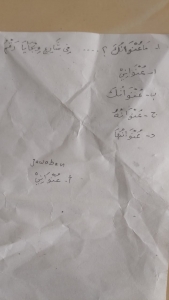 مَاعُنْوَانُكَ ؟ ..... فِي شَارِعِ
ا- عُنْوَانِيْ
ب- عُنْوَانُكَ
ج- عُنْوَانُهُ
د- عُنْوَانُهَا
Jawaban
أ. عُنْوَانِيْ